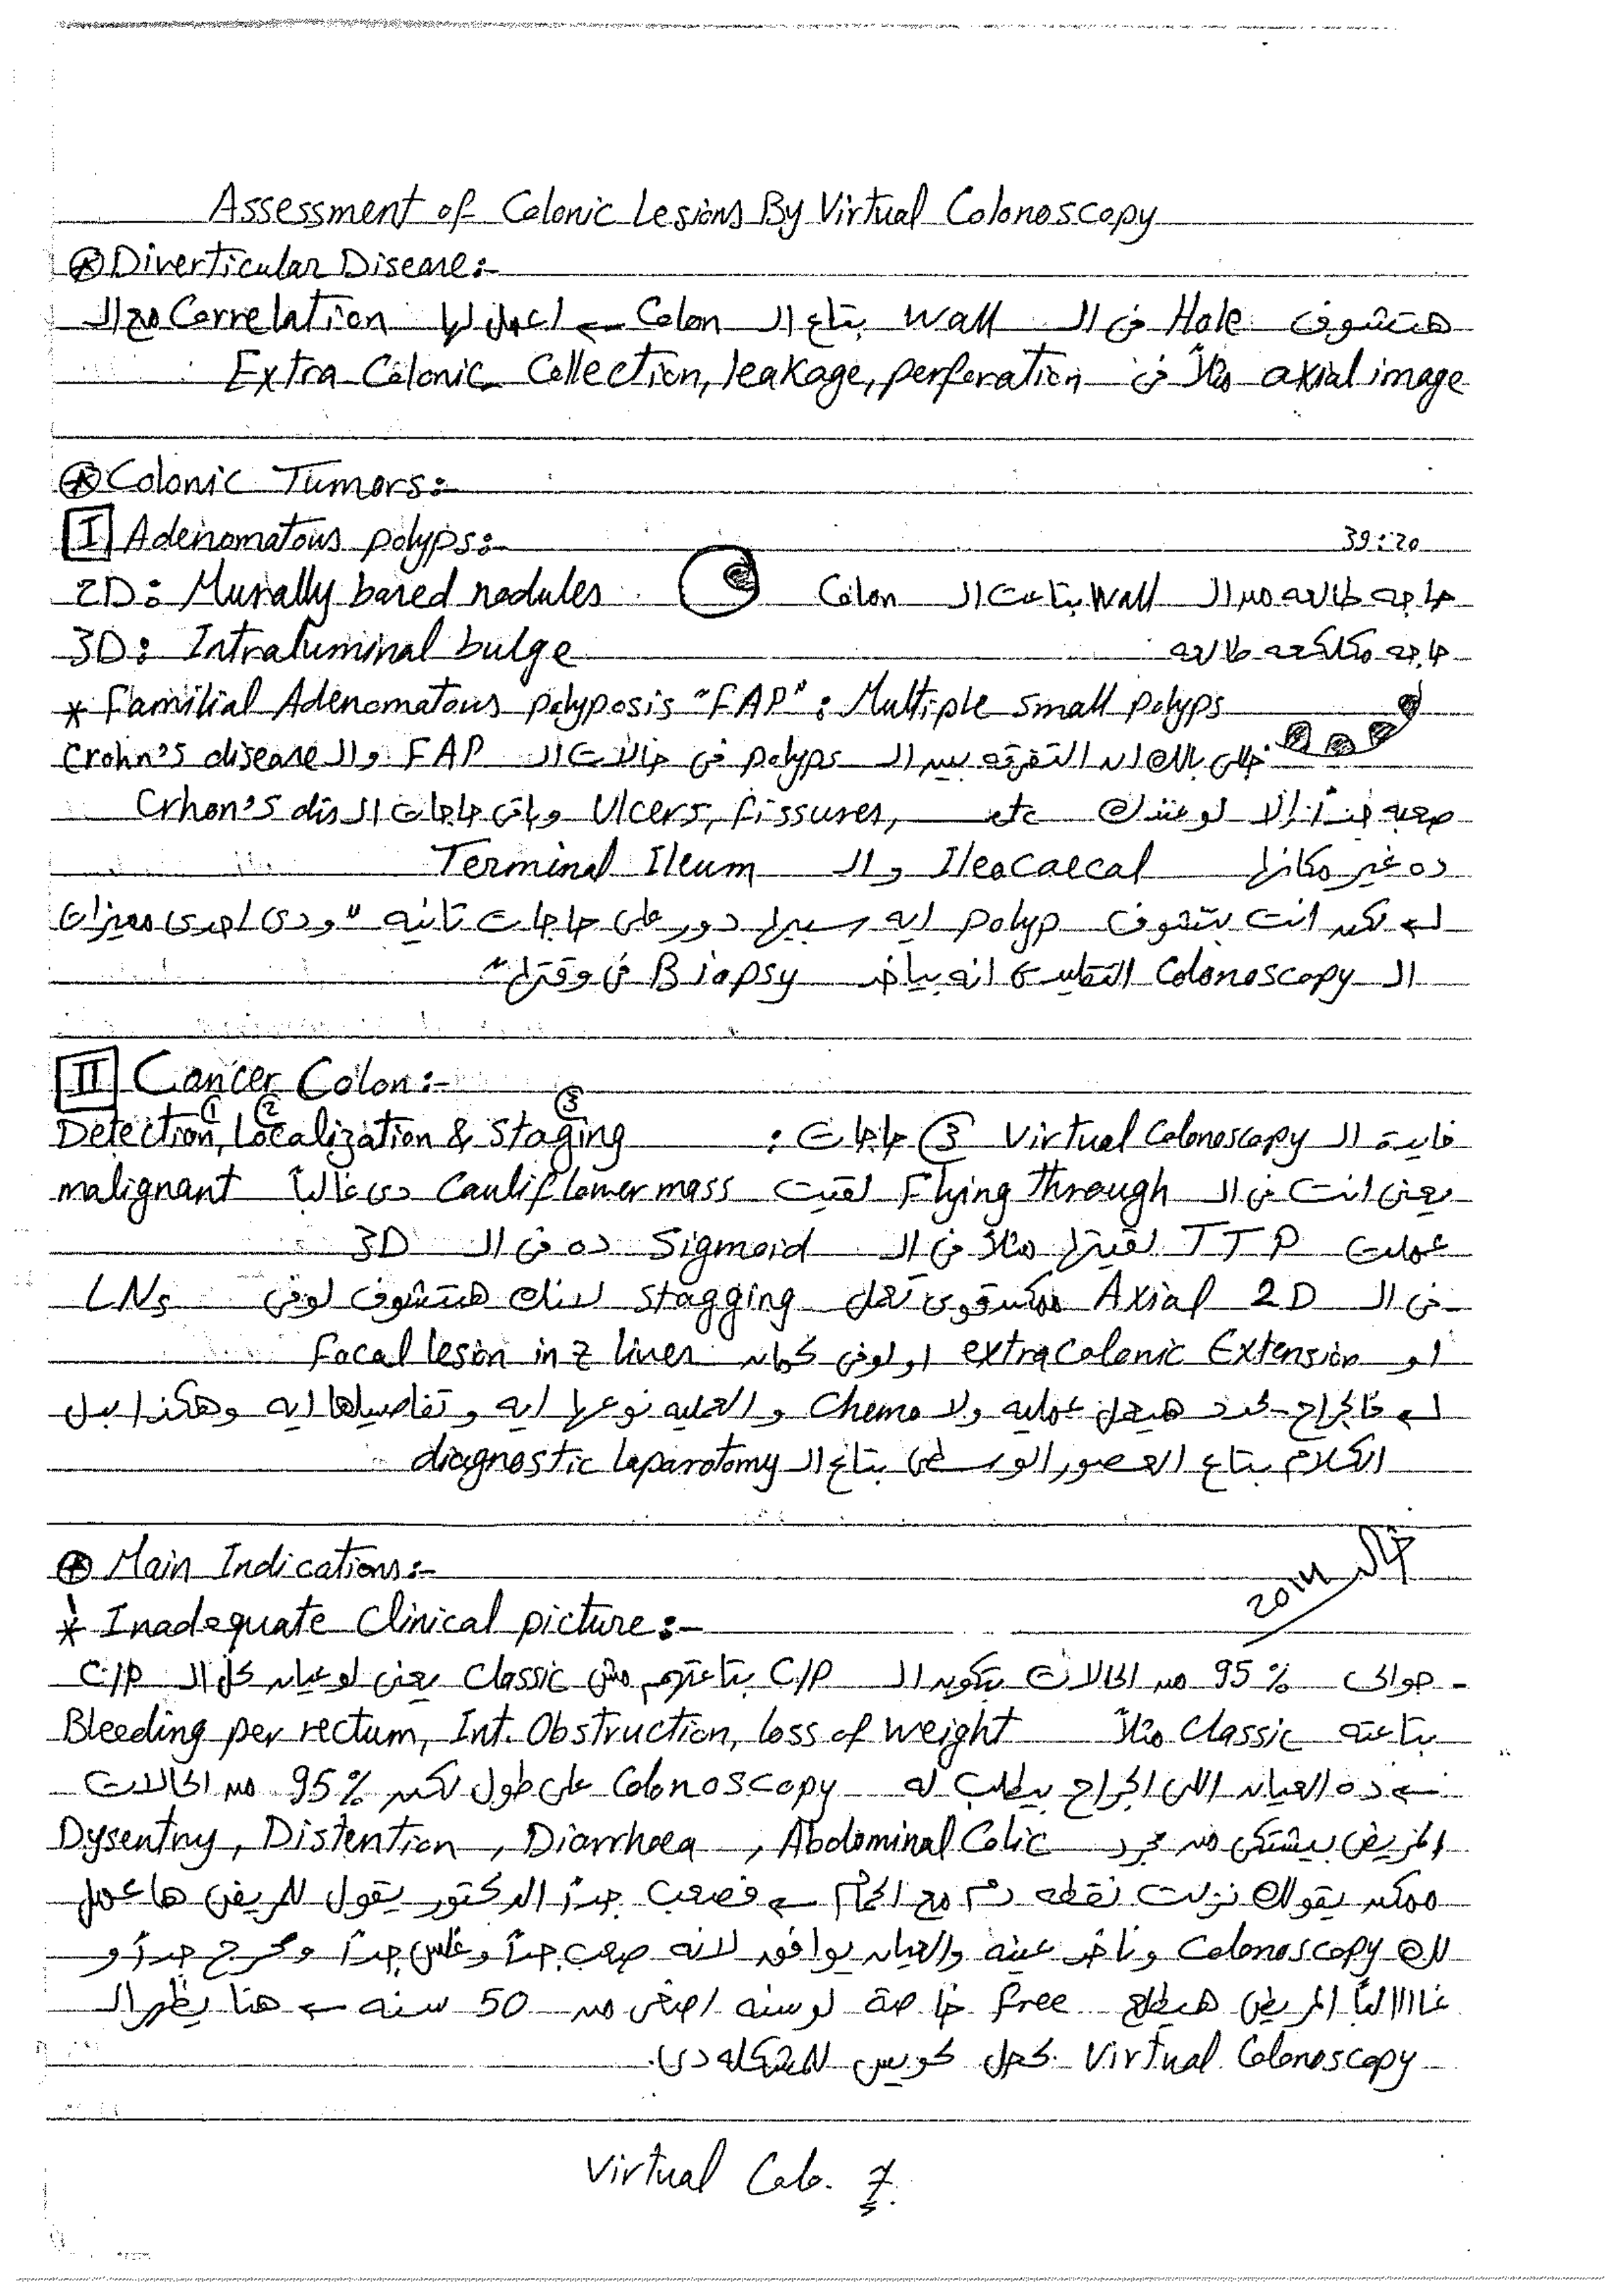 Assessment of Colonic Lesions By Virtual Colonoscopy
⊛ Diverticular Disease:-
هتشوف Hole فى ال wall بتاع ال Colon ← اعمل لها Correlation مع ال
axial image مثلاً فى Extra Colonic Collection, leakage, perforation
⊛ Colonic Tumors:-
I Adenomatous polyps:- 39:20
2D: Murally based nodules حاجه طالعه من ال wall بتاعت ال Colon
3D: Intraluminal bulge حاجه مكلكعه طالعه
* Familial Adenomatous polyposis "FAP": Multiple small polyps
خلى بالك ان التفرقه بين ال polyps فى حالات ال FAP وال Crohn's disease
صعبه جداً إلا لو عندك Ulcers, fissures, etc وباقى حاجات ال Crhon's dis
ده غير مكانها Ileocaecal وال Terminal Ileum
لكن انت بتشوف polyp ايه سببها دور على حاجات تانيه "ودى احدى مميزات
ال Colonoscopy التقليدى انه بياخد Biopsy فى وقتها"
II Cancer Colon:-
فايدة ال Virtual Colonoscopy 3 حاجات : Detection ①, Localization ② & Staging ③
يعنى انت فى ال Flying through لقيت Cauliflower mass دى غالباً malignant
عملت TTP لقيتها مثلاً فى ال Sigmoid ده فى ال 3D
فى ال Axial 2D ممكن قوى تعمل stagging لانك هتشوف لو فى LNs
او extracolonic Extension او لو فى كمان Focal lesion in z liver
فالجراح يحدد هيعمل عمليه ولا Chemo و العمليه نوعها ايه و تفاصيلها ايه وهكذا بدل
الكلام بتاع العصور الوسطى بتاع ال diagnostic laparotomy
⊛ Main Indications:-
2014
* Inadequate Clinical picture:-
- حوالى 95 % من الحالات بتكون ال C/P بتاعتهم مش Classic يعنى لو عيان كل ال C/P
بتاعته Classic مثلاً Bleeding per rectum, Int. Obstruction, loss of weight
← ده العيان اللى الجراح بيطلب له Colonoscopy على طول لكن 95 % من الحالات
المريض بيشتكى من مجرد Dysentry, Distention, Diarrhoea, Abdominal Colic
ممكن يقولك نزلت نقطه دم مع الحمام ← فصعب جداً الدكتور يقول للمريض هاعمل
لك Colonoscopy وناخد عينه والعيان يوافق لانه صعب جداً وغلس جداً ومحرج جداً و
غاااالباً المريض هيطلع free خاصة لو سنه اصغر من 50 سنه ← هنا يظهر ال
Virtual Colonoscopy كحل كويس للمشكله دى.
Virtual Colo. 7